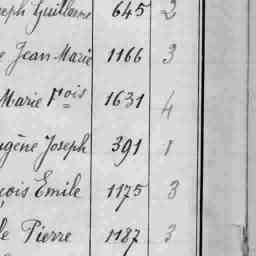 seph Guillaume 645 2
e Jean Marie 1166 3
Marie Fois 1631 4
ugène Joseph 391 1
çois Emile 1175 3
le Pierre 1187 3